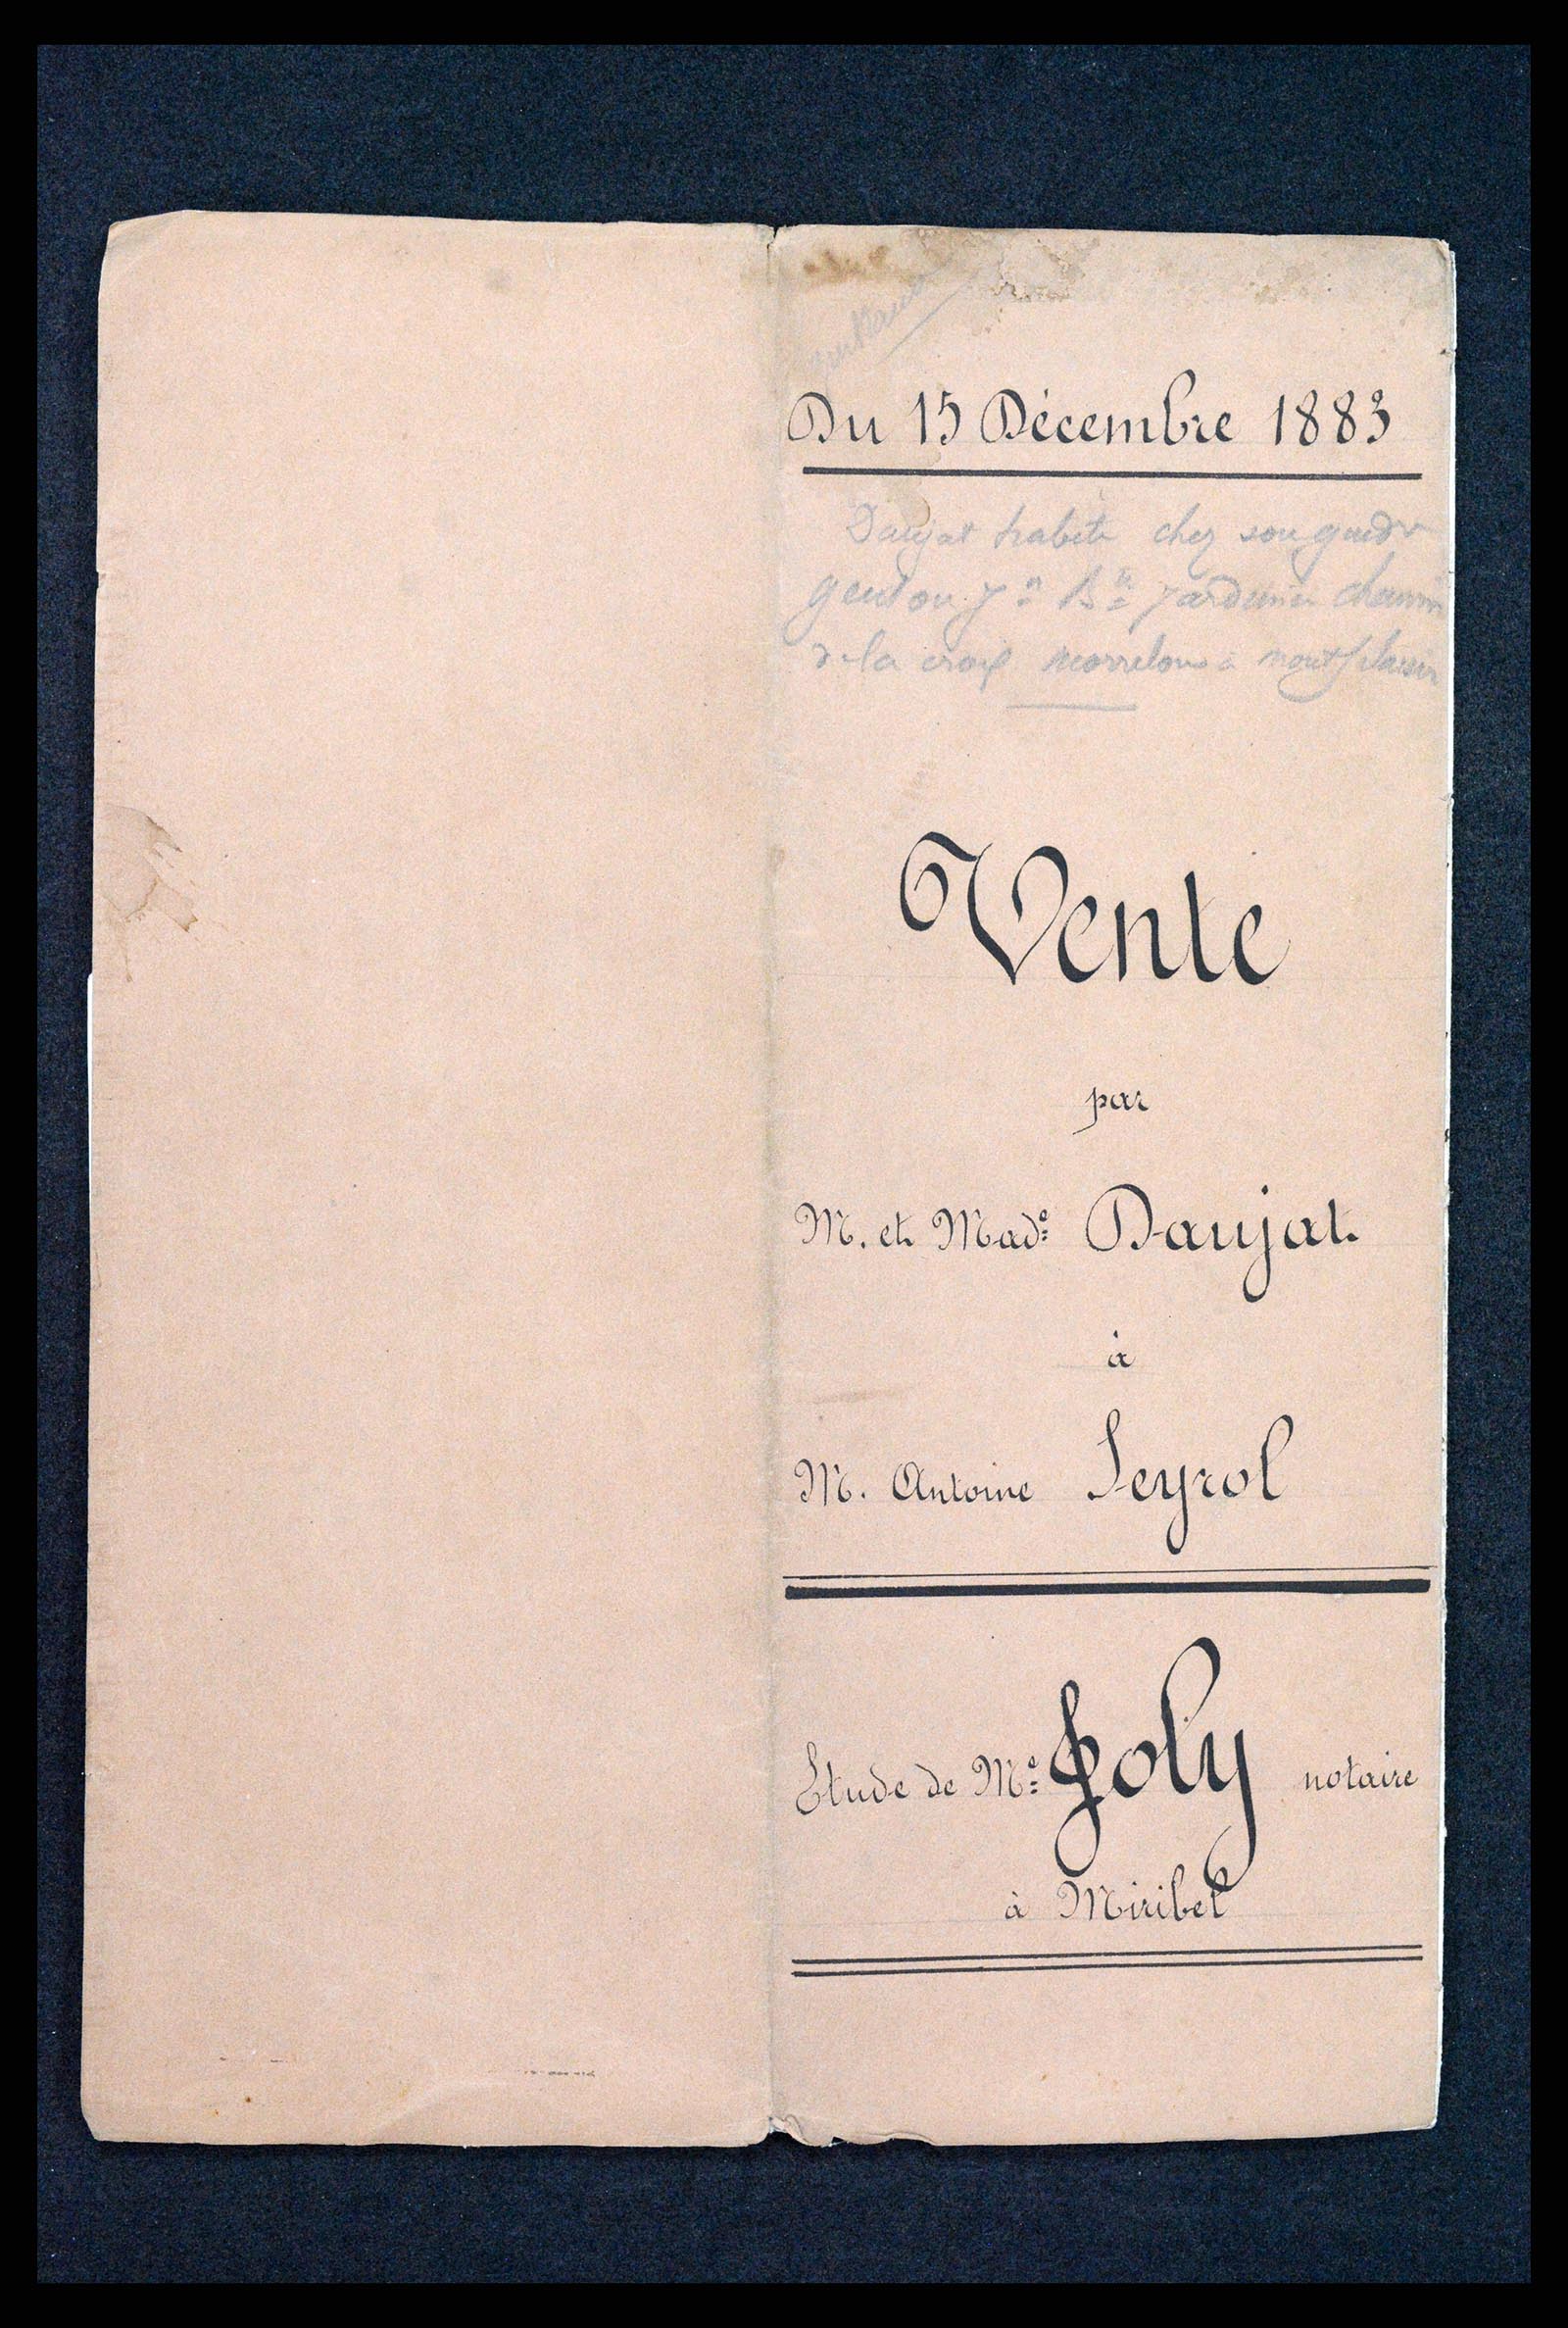 Du 15 Décembre 1883
Daujat habite chez son gendre
Jn Bte jardinier chemin
de la croix morrelon à montplaisir
Vente
par
M. et Made Daujat
à
M. Antoine Peyrol
Etude de Me Joly notaire
à Miribel